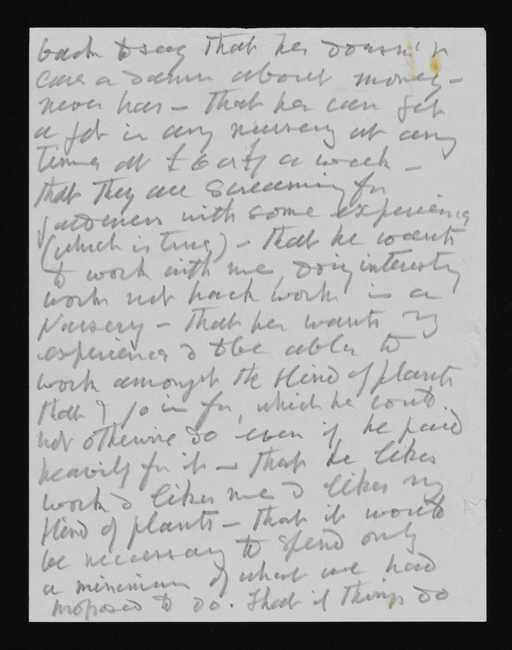 back to say that he doesn't
care a damn about money –
never has – that he can get
a job in any nursery at any
time at £6 or £7 a week –
that they are screaming for
gardeners with some experience
(which is true) – that he wants
to work with me, doing interesting
work not hack work in a
Nursery – that he wants my
experience & to be able to
work amongst the kind of plants
that I go in for, which he could
not otherwise do even if he paid
heavily for it – that he likes
work & likes me & likes my
kind of plants – that it would
be necessary to spend only
a minimum of what we had
proposed to do. That if things do